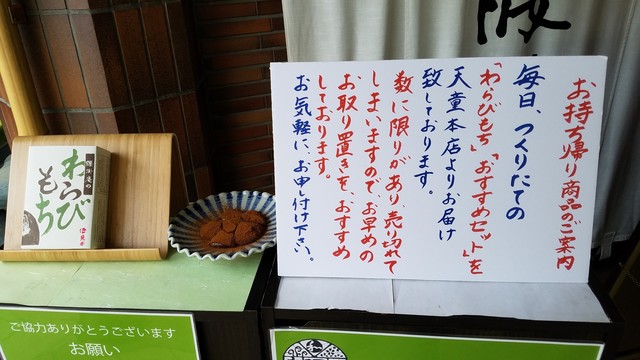 お持ち帰り商品のご案内
毎日、つくりたての
「わらびもち」「おすすめセット」を
天童本店よりお届け
致しております。
数に限りがあり売り切れて
しまいますので、お早めの
お取り置きを、おすすめ
しております。
お気軽に、お申し付け下さい。
わらび
もち
ご協力ありがとうございます
お願い